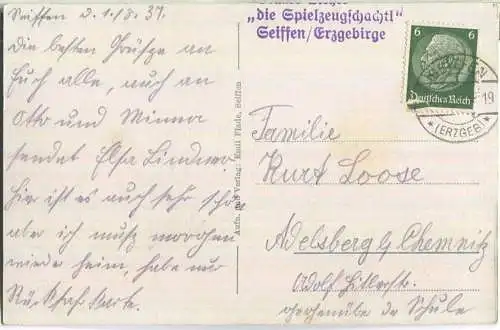 Seiffen d. 1./8. 37.
Die besten Grüße an
Euch alle, auch an
Otto und Minna
sendet Elsa Lindner.
Hier ist es auch sehr schön
aber ich muß morgen
wieder heim, habe nur
Rückfahrkarte.
„die Spielzeugschachtl"
Seiffen/Erzgebirge
6 6
Deutsches Reich
19
* (ERZGEB) *
Aufn. und Verlag: Emil Flade, Seiffen
Familie
Kurt Loose
Adelsberg b/ Chemnitz
Adolf Hitlerstr.
gegenüber der Schule